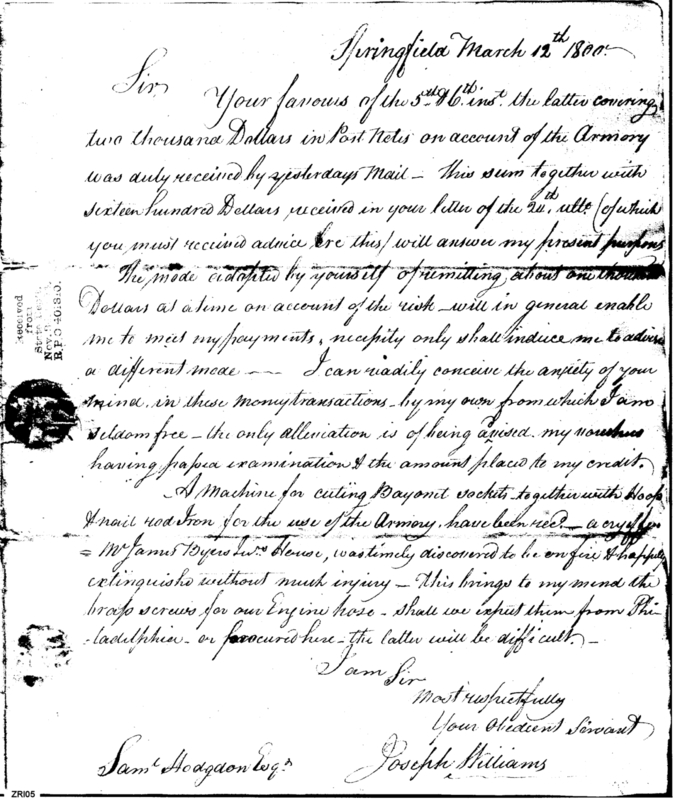 Springfield March 12th 1800
Sir,
Your favours of the 5th & 6th inst. the latter covering
two thousand Dollars in Post Notes on account of the Armory
was duly received by yesterdays Mail – this sum together with
sixteen hundred Dollars received in your letter of the 24th ulto. (of which
you must received advice ere this) will answer my present purpose
The mode adopted by yourself of remitting about one thousand
Dollars at a time on account of the risk – will in general enable
me to meet my payments, necessity only shall induce me to advise
a different mode – – I can readily conceive the anxiety of your
mind, in these Money transactions – by my own from which I am
seldom free – the only alleviation is of being advised my vouchers
having passed examination & the amount placed to my credit.
– A Machine for cuting Bayonet sockets – together with Hoop
& nail rod Iron for the use of the Armory, have been recd. – a cry of fire
= Mr. James Byers Junr. House, was timely discovered to be on fire & happily
extinguishd without much injury – This brings to my mind the
brass screws for our Engine hose – shall we expect them from Phi
-ladelphia – or procured here – the latter will be difficult. –
I am Sir
Most respectfully
Your Obedient Servant
Joseph Williams
Saml. Hodgdon Esqr.
Received
from
State
Nov.
R.P.O
ZRI05